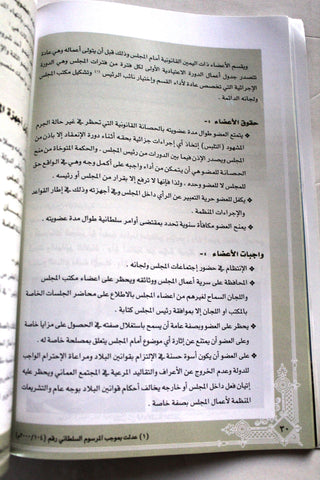 ويقسم الأعضاء ذات اليمين القانونية أمام المجلس وذلك قبل أن يتولى أعماله وهي عادة
تتصدر جدول أعمال الدورة الاعتيادية الأولى لكل فترة من فترات المجلس وهي الدورة
الإجرائية التي تخصص عادة لأداء القسم وإختيار نائب الرئيس (١) وتشكيل مكتب المجلس
ولجانه الدائمة .
حقوق الأعضاء :-
❖ يتمتع العضو طوال مدة عضويته بالحصانة القانونية التي تحظر في غير حالة الجرم
المشهود ( التلبس ) إتخاذ أي إجراءات جزائية بحقه أثناء دورة الإنعقاد إلا بإذن من
المجلس ويصدر الإذن فيما بين الدورات من رئيس المجلس . والحكمة المتوخاة من منح
الحصانة للعضو هي أن يتمكن من أداء واجبه على أكمل وجه وهي في الواقع حق
للمجلس لا للعضو وحده . ولذا فإنها لا ترفع إلا بقرار من المجلس أو رئيسه .
❖ يكفل للعضو حرية التعبير عن الرأي داخل المجلس وفي أجهزته وذلك في إطار القواعد
والإجراءات المنظمة .
❖ يمنح العضو مكافأة سنوية تحدد بمقتضى أوامر سلطانية طوال مدة عضويته .
واجبات الأعضاء :-
❖ الإنتظام في حضور إجتماعات المجلس ولجانه .
❖ المحافظة على سرية أعمال المجلس ووثائقه ويحظر على أعضاء مكتب المجلس
واللجان السماح لغيرهم من أعضاء المجلس بالاطلاع على محاضر الجلسات الخاصة
بالمكتب أو اللجان إلا بموافقة رئيس المجلس كتابة .
❖ يحظر على العضو وبصفة عامة أن يسمح باستغلال صفته في الحصول على مزايا خاصة
وعلى العضو أن يمتنع عن إثارة أي موضوع أمام المجلس يتعلق بمصلحة خاصة له .
❖ على العضو أن يكون أسوة حسنة في الإلتزام بقوانين البلاد ومراعاة الإحترام الواجب
للدولة وعدم الخروج عن الأعراف والتقاليد المرعية في المجتمع العماني ويحظر عليه
إتيان فعل داخل المجلس أو خارجه يخالف أحكام قوانين البلاد بوجه عام والتشريعات
المنظمة لأعمال المجلس بصفة خاصة .
(١) عدلت بموجب المرسوم السلطاني رقم
٣٠